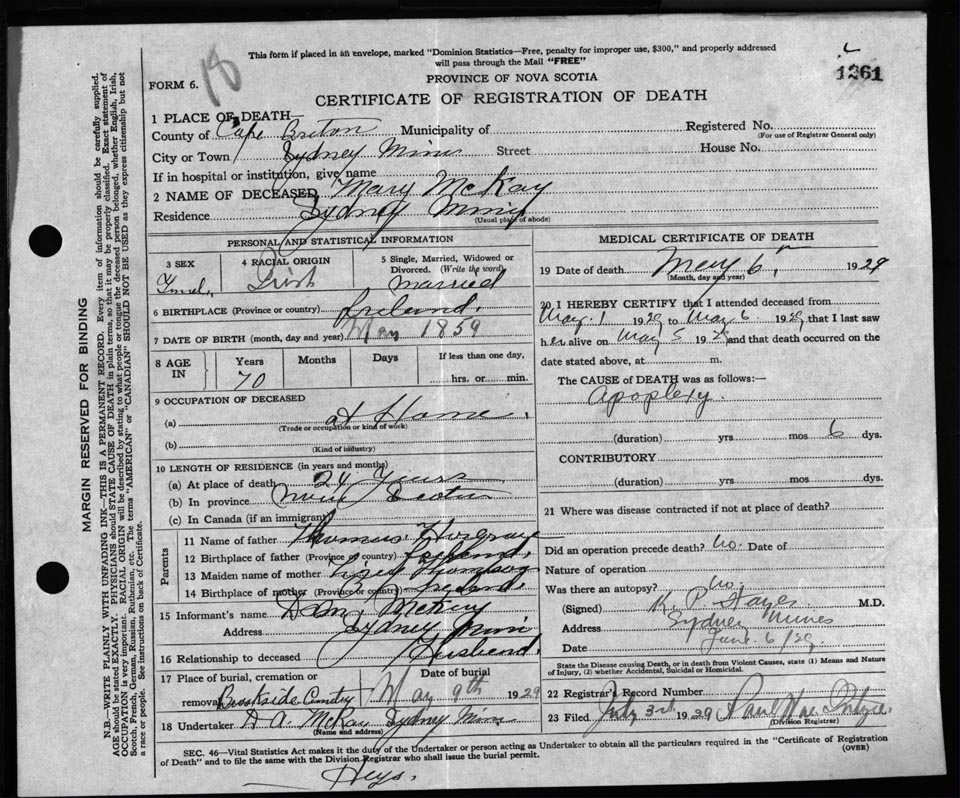 This form if placed in an envelope, marked "Dominion Statistics—Free, penalty for improper use, $300," and properly addressed
will pass through the Mail "FREE"
1261
18
FORM 6.
PROVINCE OF NOVA SCOTIA
CERTIFICATE OF REGISTRATION OF DEATH
1 PLACE OF DEATH—
County of Cape Breton Municipality of Registered No.
(For use of Registrar General only)
City or Town Sydney Mines Street House No.
If in hospital or institution, give name
2 NAME OF DECEASED Mary McKay
Residence Sydney Mines
(Usual place of abode)
PERSONAL AND STATISTICAL INFORMATION
3 SEX
4 RACIAL ORIGIN
Irish
5 Single, Married, Widowed or Divorced. (Write the word)
Married
6 BIRTHPLACE (Province or country) Ireland.
7 DATE OF BIRTH (month, day and year) May 1859
8 AGE IN
Years
70
Months
Days
If less than one day,
hrs. or min.
9 OCCUPATION OF DECEASED
(a) at Home.
(Trade or occupation or kind of work)
(b)
(Kind of industry)
10 LENGTH OF RESIDENCE (in years and months)
(a) At place of death 24 Years
(b) In province Nova Scotia
(c) In Canada (if an immigrant)
Parents
11 Name of father Thomas
12 Birthplace of father (Province or country) Ireland.
13 Maiden name of mother Thompson
14 Birthplace of mother (Province or country) Ireland.
15 Informant's name McKay
Address Sydney Mines
16 Relationship to deceased Husband.
17 Place of burial, cremation or removal
Brookside
Date of burial
May 9th 1929
18 Undertaker A. A. McKay Sydney Mines
(Name and address)
MEDICAL CERTIFICATE OF DEATH
19 Date of death May 6, 1929
(Month, day and year)
20 I HEREBY CERTIFY that I attended deceased from
May 1 1929 to May 6 1929 that I last saw
her alive on May 5 1929 and that death occurred on the
date stated above, at m.
The CAUSE of DEATH was as follows:—
Apoplexy.
(duration) yrs mos 6 dys.
CONTRIBUTORY
(duration) yrs. mos. dys.
21 Where was disease contracted if not at place of death?
Did an operation precede death? No. Date of
Nature of operation
Was there an autopsy? No.
(Signed) M.D.
Address Sydney Mines
Date June 6/29
State the Disease causing Death, or in death from Violent Causes, state (1) Means and Nature
of Injury, (2) whether Accidental, Suicidal or Homicidal.
22 Registrar's Record Number
23 Filed July 3rd 1929
(Division Registrar)
SEC. 46—Vital Statistics Act makes it the duty of the Undertaker or person acting as Undertaker to obtain all the particulars required in the "Certificate of Registration
of Death" and to file the same with the Division Registrar who shall issue the burial permit.
(OVER)
MARGIN RESERVED FOR BINDING
N.B.—WRITE PLAINLY WITH UNFADING INK—THIS IS A PERMANENT RECORD. Every item of information should be carefully supplied.
AGE should be stated EXACTLY. PHYSICIANS should STATE CAUSE OF DEATH in plain terms, so that it may be properly classified. Exact statement of
OCCUPATION is very important. RACIAL ORIGIN will be described by stating to what people or tongue the deceased person belonged, whether English, Irish,
Scotch, French, German, Russian, Ruthenian, etc. The terms "AMERICAN" or "CANADIAN" SHOULD NOT BE USED as they express citizenship but not
a race or people. See instructions on back of Certificate.